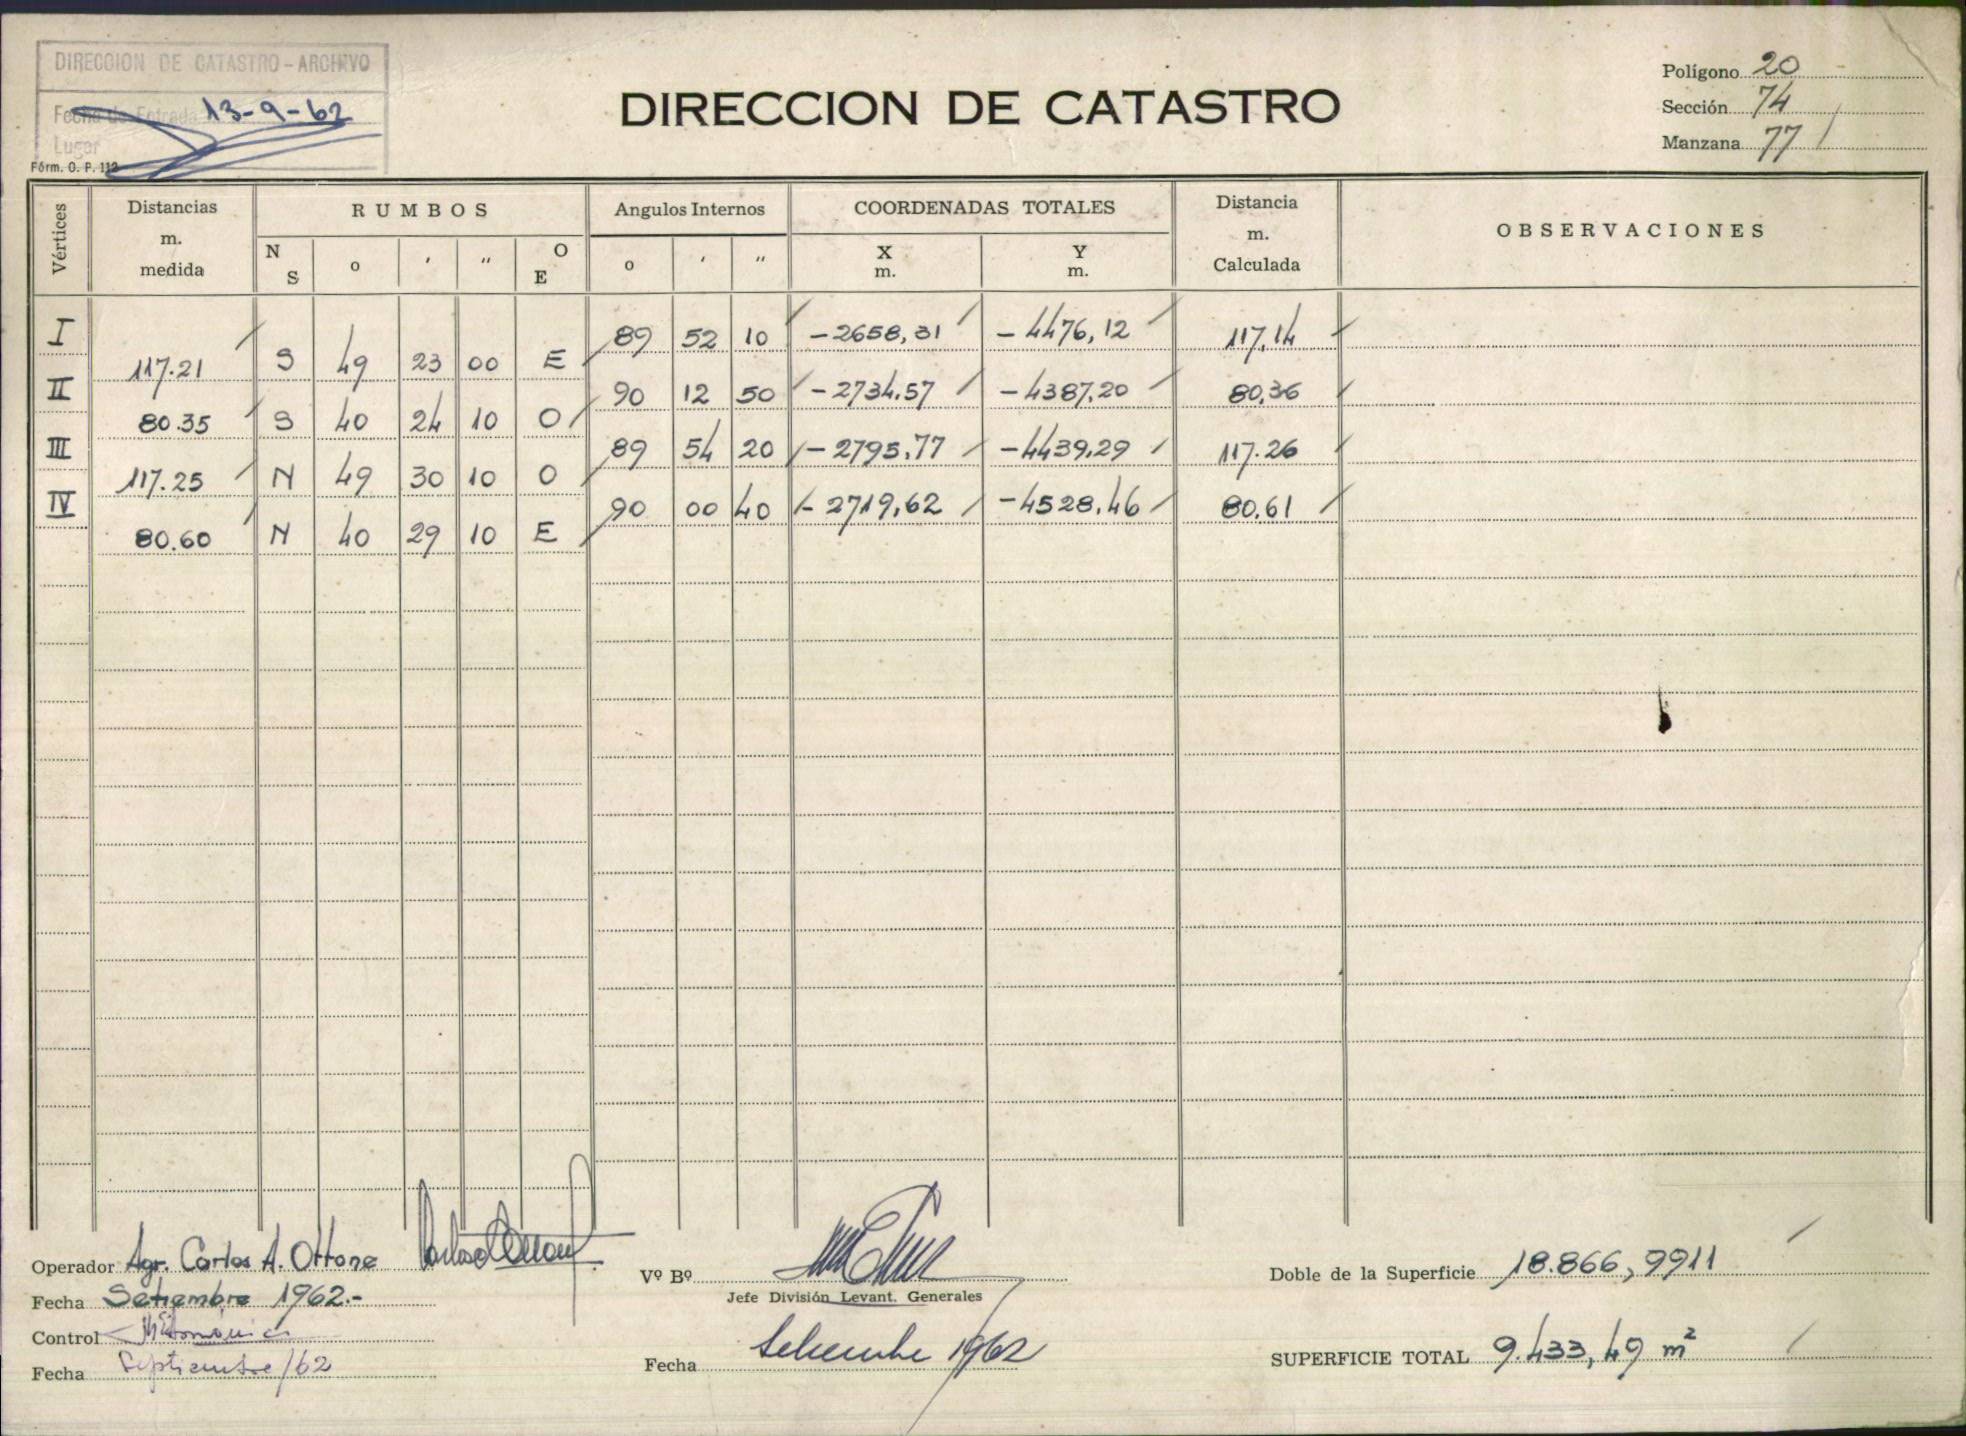 DIRECCION DE CATASTRO - ARCHIVO
Fecha de Entrada 13-9-62
Lugar
Fórm. O. P. 112
DIRECCION DE CATASTRO
Polígono 20
Sección 74
Manzana 77
Vértices Distancias m. medida RUMBOS Angulos Internos COORDENADAS TOTALES Distancia m. Calculada OBSERVACIONES
N S o ' " O E o ' " X m. Y m.
I 89 52 10 -2658,31 -4476,12 117,14
117.21 S 49 23 00 E
II 90 12 50 -2734,57 -4387,20 80,36
80.35 S 40 24 10 O
III 89 54 20 -2795,77 -4439,29 117.26
117.25 N 49 30 10 O
IV 90 00 40 -2719,62 -4528,46 80,61
80.60 N 40 29 10 E
Operador Agr. Carlos A. Ottone
Fecha Setiembre 1962.-
Control
Fecha Septiembre/62
Vº Bº
Jefe División Levant. Generales
Fecha Setiembre 1962
Doble de la Superficie 18.866,9911
SUPERFICIE TOTAL 9.433,49 m²